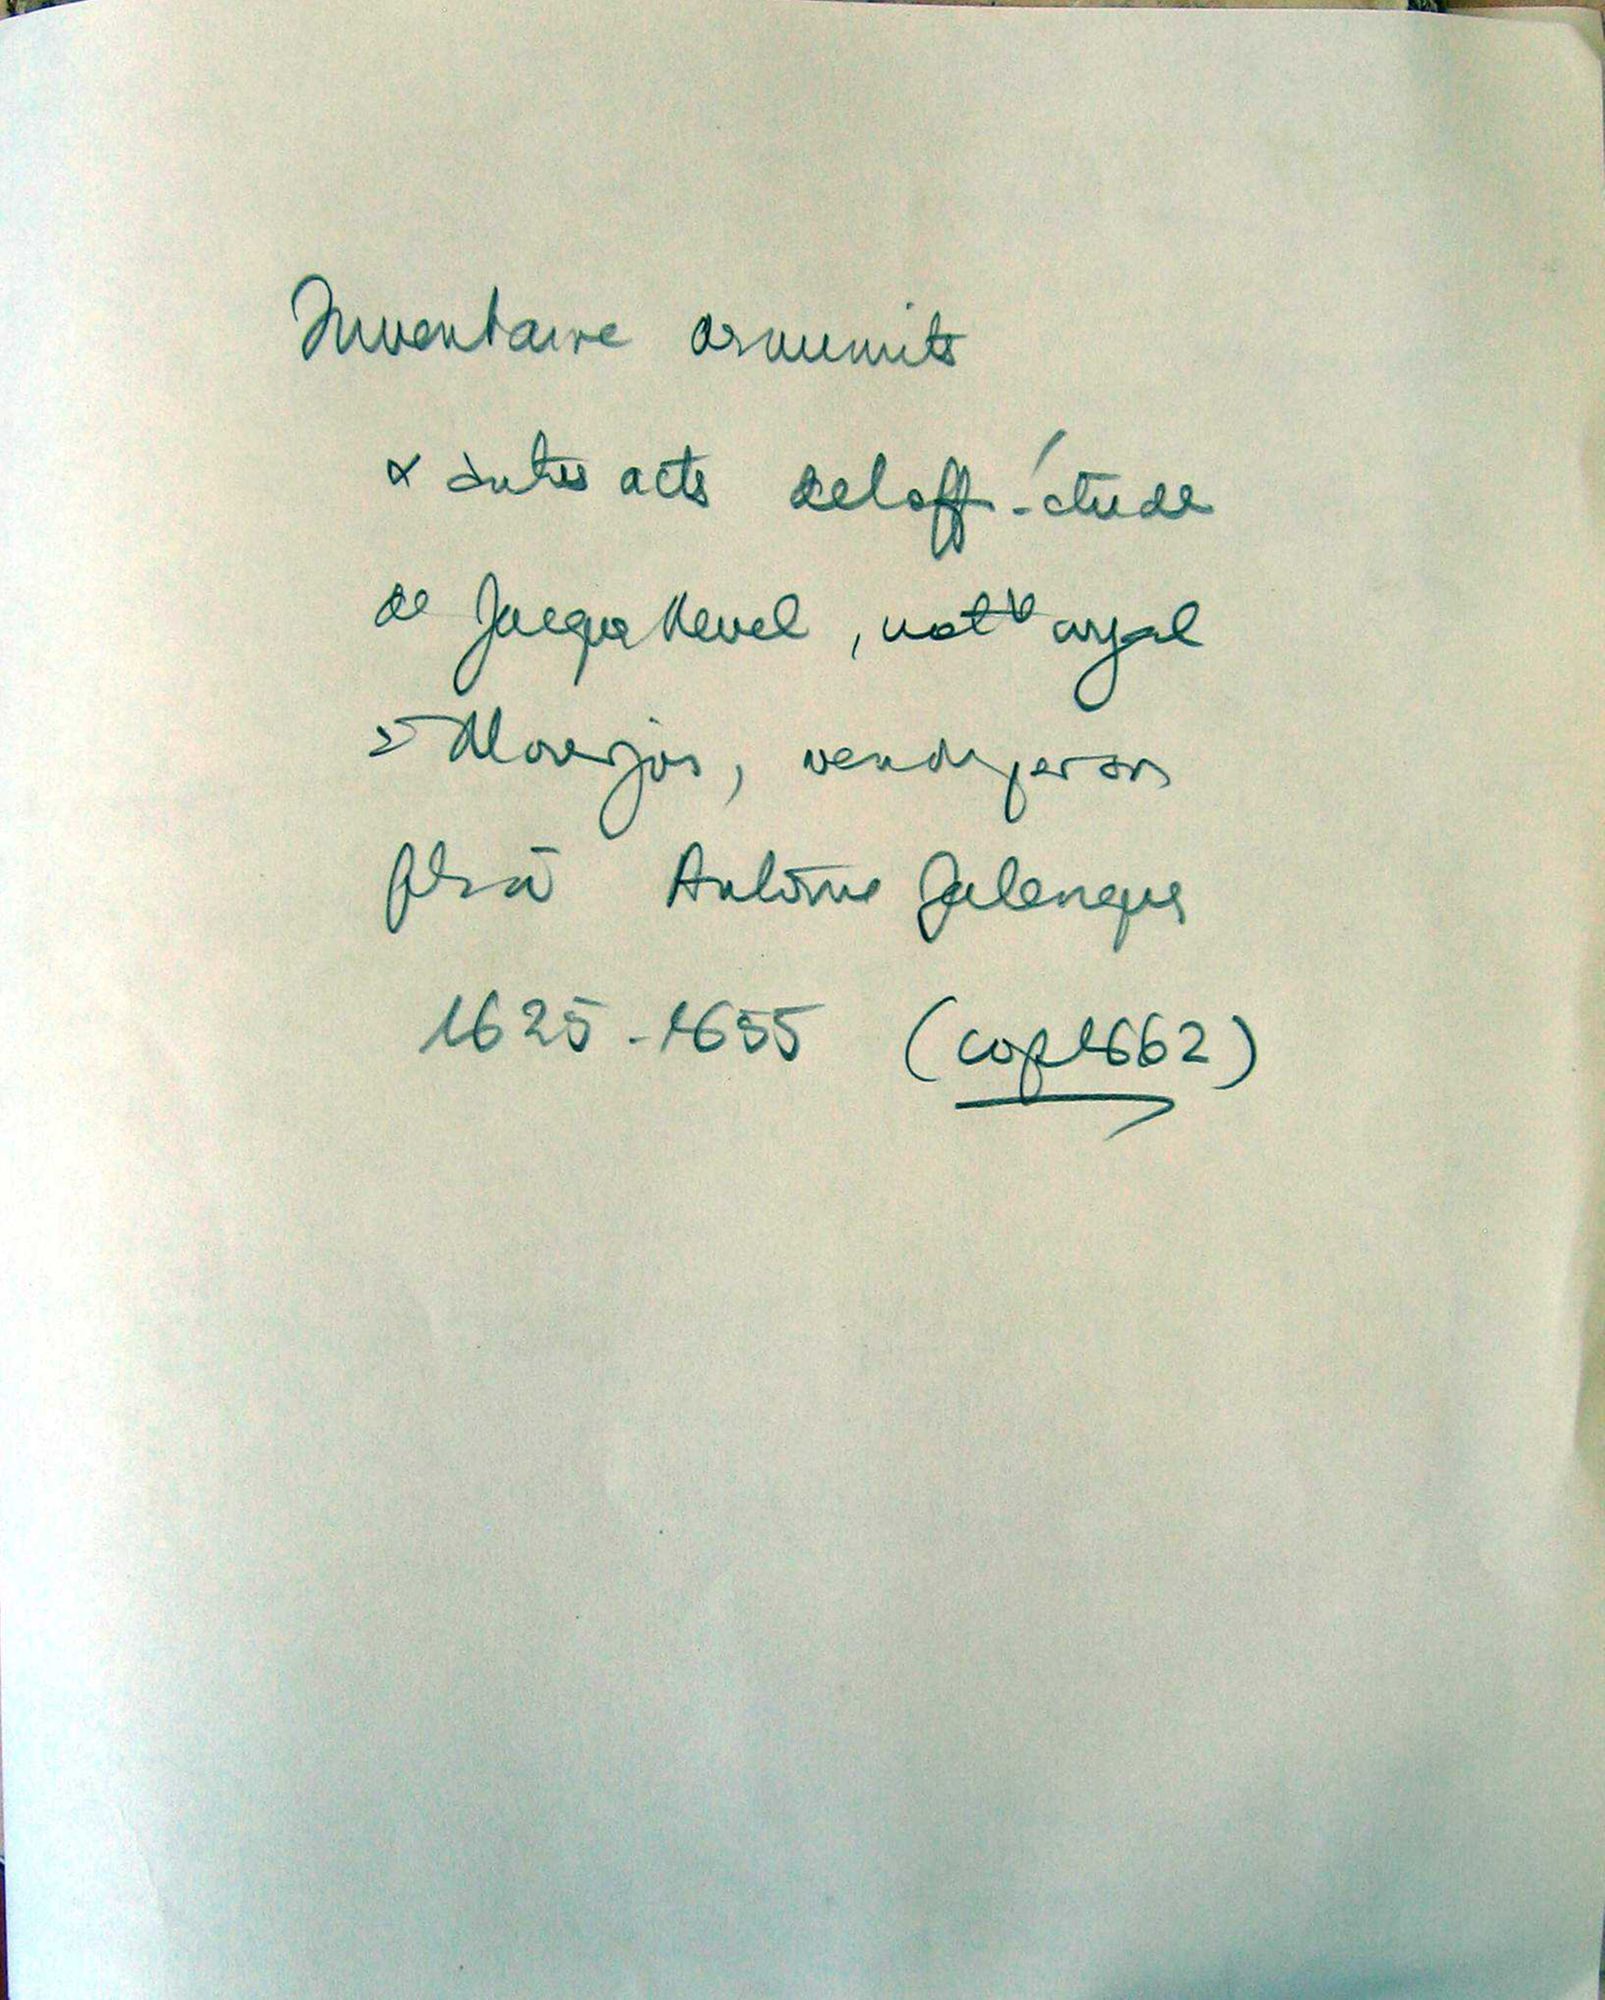 Inventaire documents
& autres acts de loff - étude
de Jacques Revel, not re royal
à Mourjou, vendu par son
fils à Antoine Jalenques
1625 - 1655 (cop 1662)